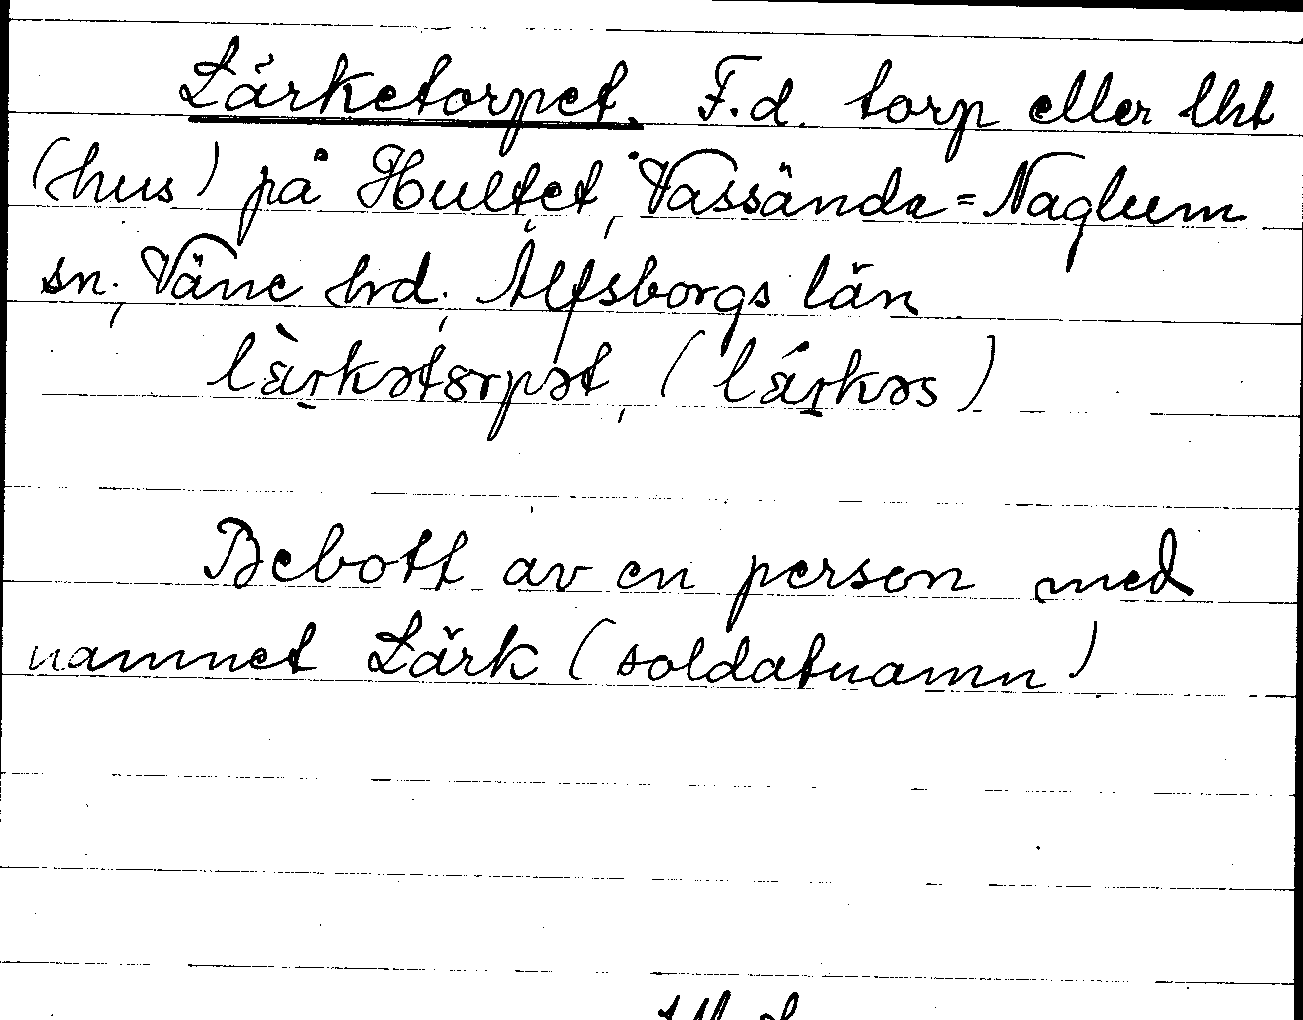 Lärketorpet. F.d. torp eller lht
(hus) på Hultet, Vassända-Naglum
sn, Väne hrd, Älfsborgs län
lärkətorpət, (lärkəs)
Bebott av en person med
namnet Lärk (soldatnamn)